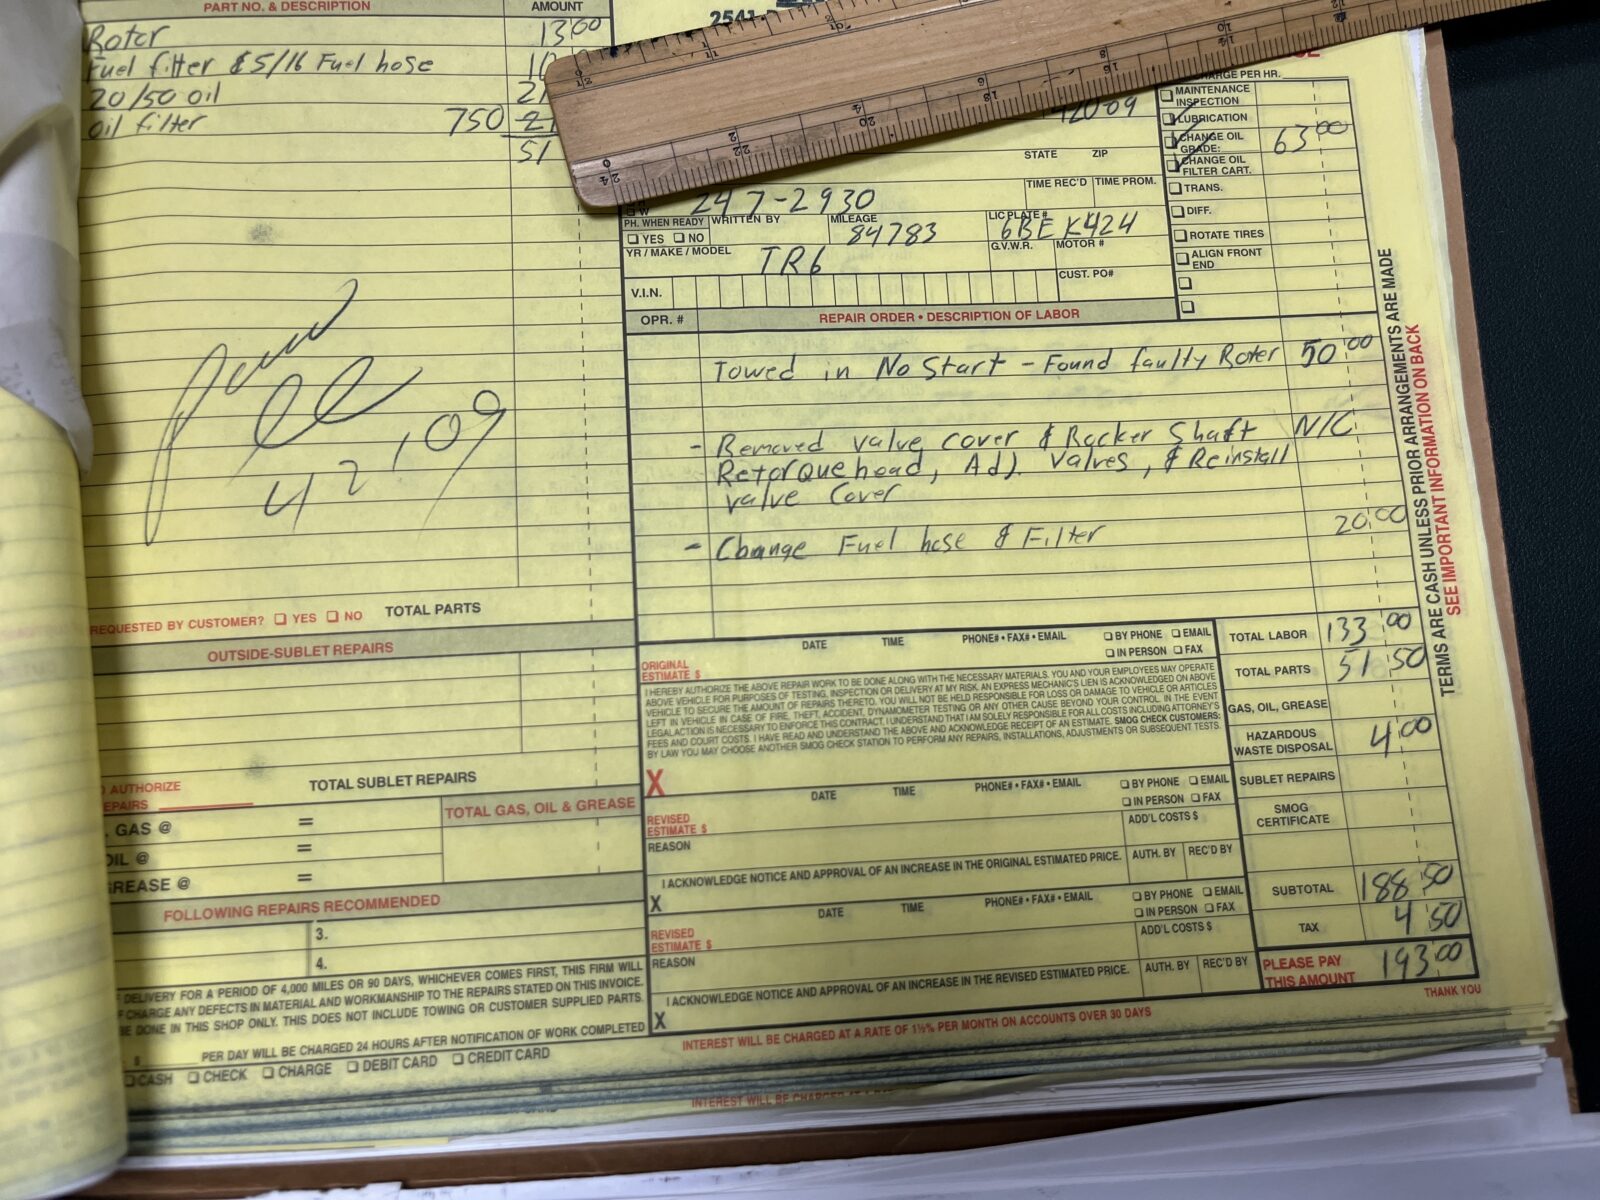 PART NO. & DESCRIPTION AMOUNT
Roter 13 00
Fuel filter & 5/16 Fuel hose
20/50 oil
oil filter 750
51
2541
CHARGE PER HR.
MAINTENANCE INSPECTION
LUBRICATION
CHANGE OIL GRADE: 63 00
CHANGE OIL FILTER CART.
TRANS.
DIFF.
ROTATE TIRES
ALIGN FRONT END
STATE ZIP
TIME REC'D TIME PROM.
247-2930
PH. WHEN READY WRITTEN BY MILEAGE LIC PLATE #
YES NO 84783 6BEK424
YR / MAKE / MODEL TR6 G.V.W.R. MOTOR #
V.I.N. CUST. PO#
OPR. # REPAIR ORDER • DESCRIPTION OF LABOR
Towed in No Start - Found faulty Roter 50 00
- Removed valve cover & Rocker Shaft N/C
Retorque head, Adj. Valves, & Reinstall
valve Cover
- Change Fuel hose & Filter 20.00
TERMS ARE CASH UNLESS PRIOR ARRANGEMENTS ARE MADE
SEE IMPORTANT INFORMATION ON BACK
REQUESTED BY CUSTOMER? YES NO TOTAL PARTS
OUTSIDE-SUBLET REPAIRS
AUTHORIZE TOTAL SUBLET REPAIRS
TOTAL GAS, OIL & GREASE
GAS @ =
OIL @ =
GREASE @ =
FOLLOWING REPAIRS RECOMMENDED
3.
4.
DELIVERY FOR A PERIOD OF 4,000 MILES OR 90 DAYS, WHICHEVER COMES FIRST, THIS FIRM WILL
CHARGE ANY DEFECTS IN MATERIAL AND WORKMANSHIP TO THE REPAIRS STATED ON THIS INVOICE.
BE DONE IN THIS SHOP ONLY. THIS DOES NOT INCLUDE TOWING OR CUSTOMER SUPPLIED PARTS.
$ PER DAY WILL BE CHARGED 24 HOURS AFTER NOTIFICATION OF WORK COMPLETED
CASH CHECK CHARGE DEBIT CARD CREDIT CARD
DATE TIME PHONE# • FAX# • EMAIL BY PHONE EMAIL
IN PERSON FAX
ORIGINAL ESTIMATE $
I HEREBY AUTHORIZE THE ABOVE REPAIR WORK TO BE DONE ALONG WITH THE NECESSARY MATERIALS. YOU AND YOUR EMPLOYEES MAY OPERATE
ABOVE VEHICLE FOR PURPOSES OF TESTING, INSPECTION OR DELIVERY AT MY RISK. AN EXPRESS MECHANIC'S LIEN IS ACKNOWLEDGED ON ABOVE
VEHICLE TO SECURE THE AMOUNT OF REPAIRS THERETO. YOU WILL NOT BE HELD RESPONSIBLE FOR LOSS OR DAMAGE TO VEHICLE OR ARTICLES
LEFT IN VEHICLE IN CASE OF FIRE, THEFT, ACCIDENT, DYNAMOMETER TESTING OR ANY OTHER CAUSE BEYOND YOUR CONTROL. IN THE EVENT
LEGAL ACTION IS NECESSARY TO ENFORCE THIS CONTRACT, I UNDERSTAND THAT I AM SOLELY RESPONSIBLE FOR ALL COSTS INCLUDING ATTORNEY'S
FEES AND COURT COSTS. I HAVE READ AND UNDERSTAND THE ABOVE AND ACKNOWLEDGE RECEIPT OF AN ESTIMATE. SMOG CHECK CUSTOMERS:
BY LAW YOU MAY CHOOSE ANOTHER SMOG CHECK STATION TO PERFORM ANY REPAIRS, INSTALLATIONS, ADJUSTMENTS OR SUBSEQUENT TESTS.
X
DATE TIME PHONE# • FAX# • EMAIL BY PHONE EMAIL
IN PERSON FAX
REVISED ESTIMATE $ ADD'L COSTS $
REASON AUTH. BY REC'D BY
I ACKNOWLEDGE NOTICE AND APPROVAL OF AN INCREASE IN THE ORIGINAL ESTIMATED PRICE.
X
DATE TIME PHONE# • FAX# • EMAIL BY PHONE EMAIL
IN PERSON FAX
REVISED ESTIMATE $ ADD'L COSTS $
REASON AUTH. BY REC'D BY
I ACKNOWLEDGE NOTICE AND APPROVAL OF AN INCREASE IN THE REVISED ESTIMATED PRICE.
X
TOTAL LABOR 133 00
TOTAL PARTS 51 50
GAS, OIL, GREASE
HAZARDOUS WASTE DISPOSAL 4 00
SUBLET REPAIRS
SMOG CERTIFICATE
SUBTOTAL 188 50
TAX 4 50
PLEASE PAY THIS AMOUNT 193 00
THANK YOU
INTEREST WILL BE CHARGED AT A RATE OF 1½% PER MONTH ON ACCOUNTS OVER 30 DAYS
INTEREST WILL BE CHARGED AT A